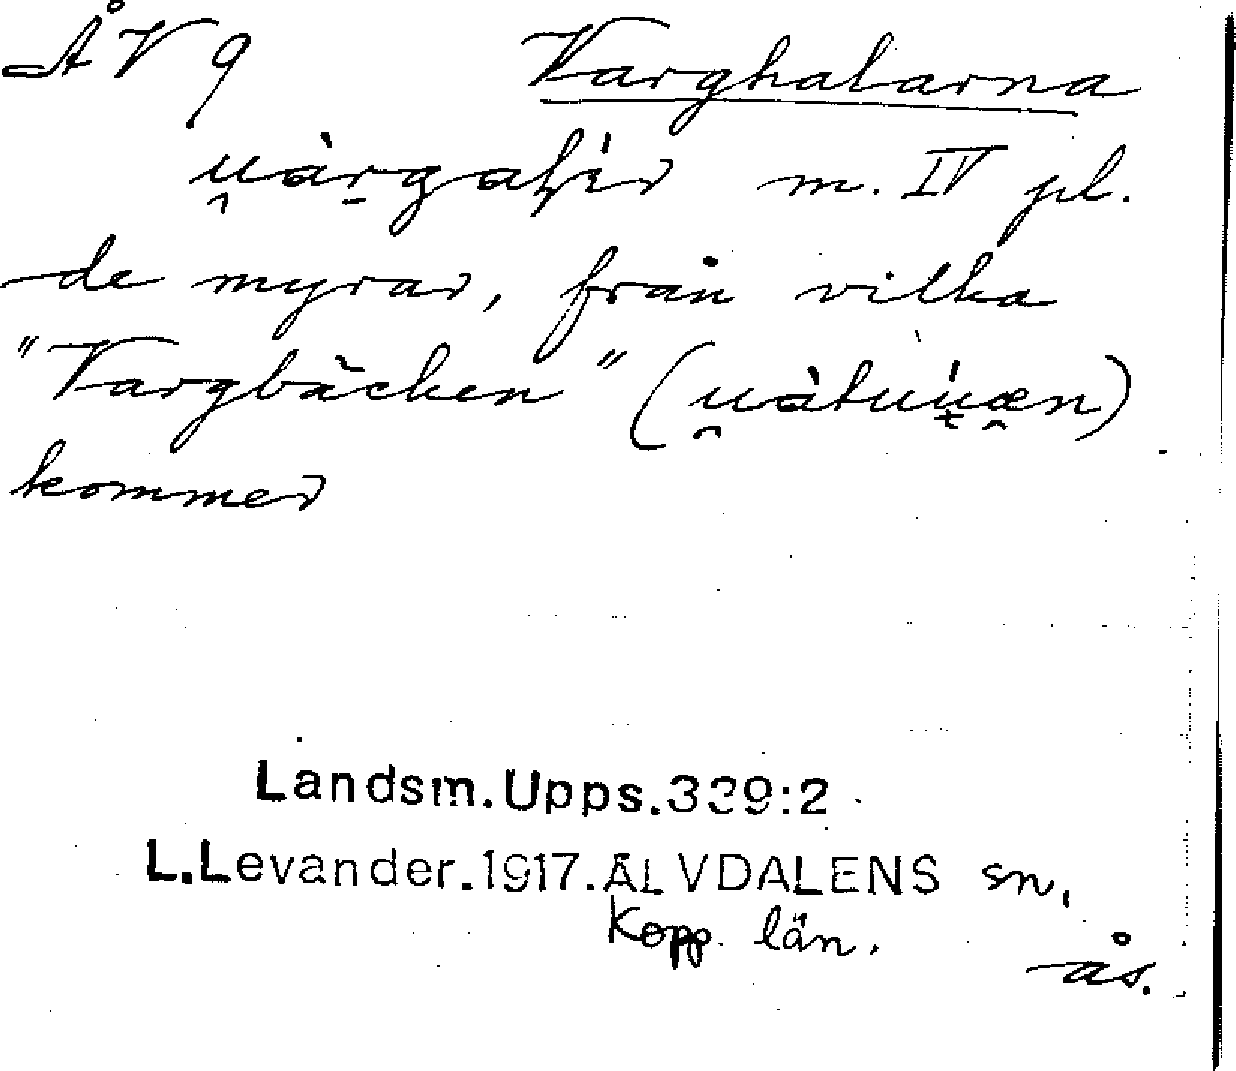 ÅV 9 Varghalarna
m. IV pl.
de myrar, från vilka
"Vargbäcken" (
kommer
Landsm.Upps.339:2
L.Levander.1917.ÄLVDALENS sn.
Kopp. län.
ås.